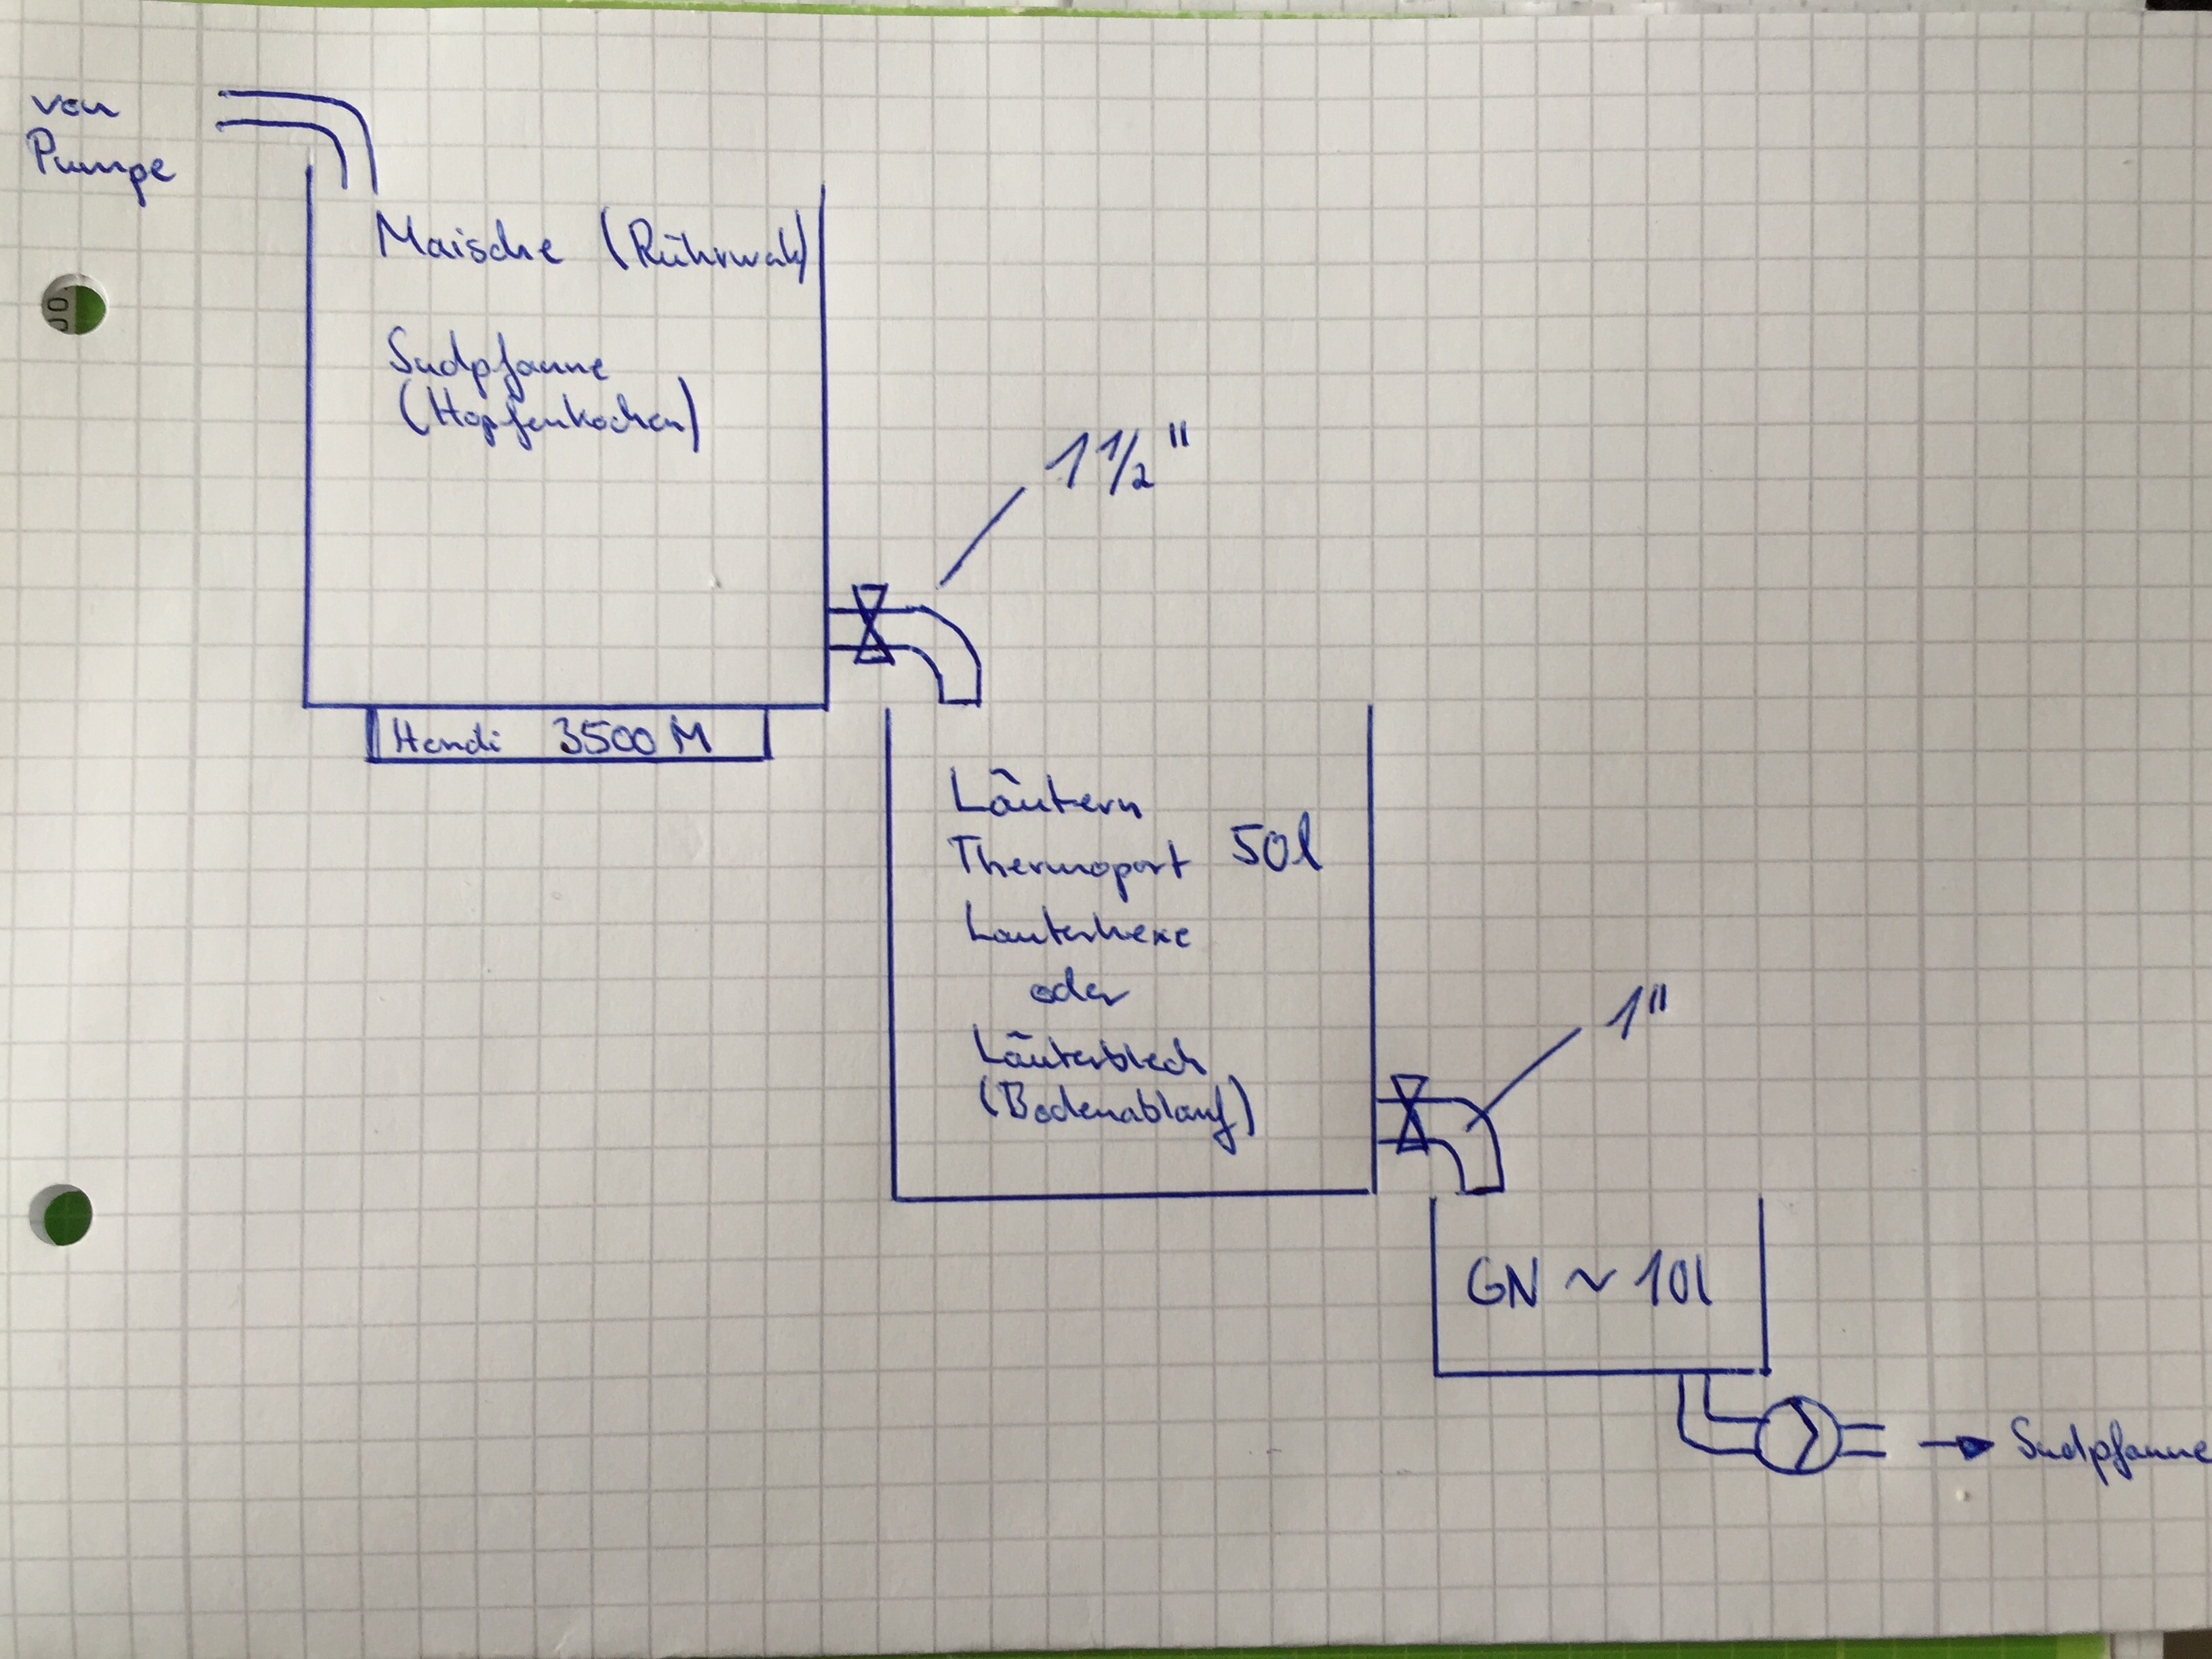 von
Pumpe
Maische (Rührwerk)
Sudpfanne
(Hopfenkochen)
1 1/2"
Hendi 3500 M
Läutern
Thermoport 50l
Läuterhexe
oder
Läuterblech
(Bodenablauf)
1"
GN ~ 10l
Sudpfanne